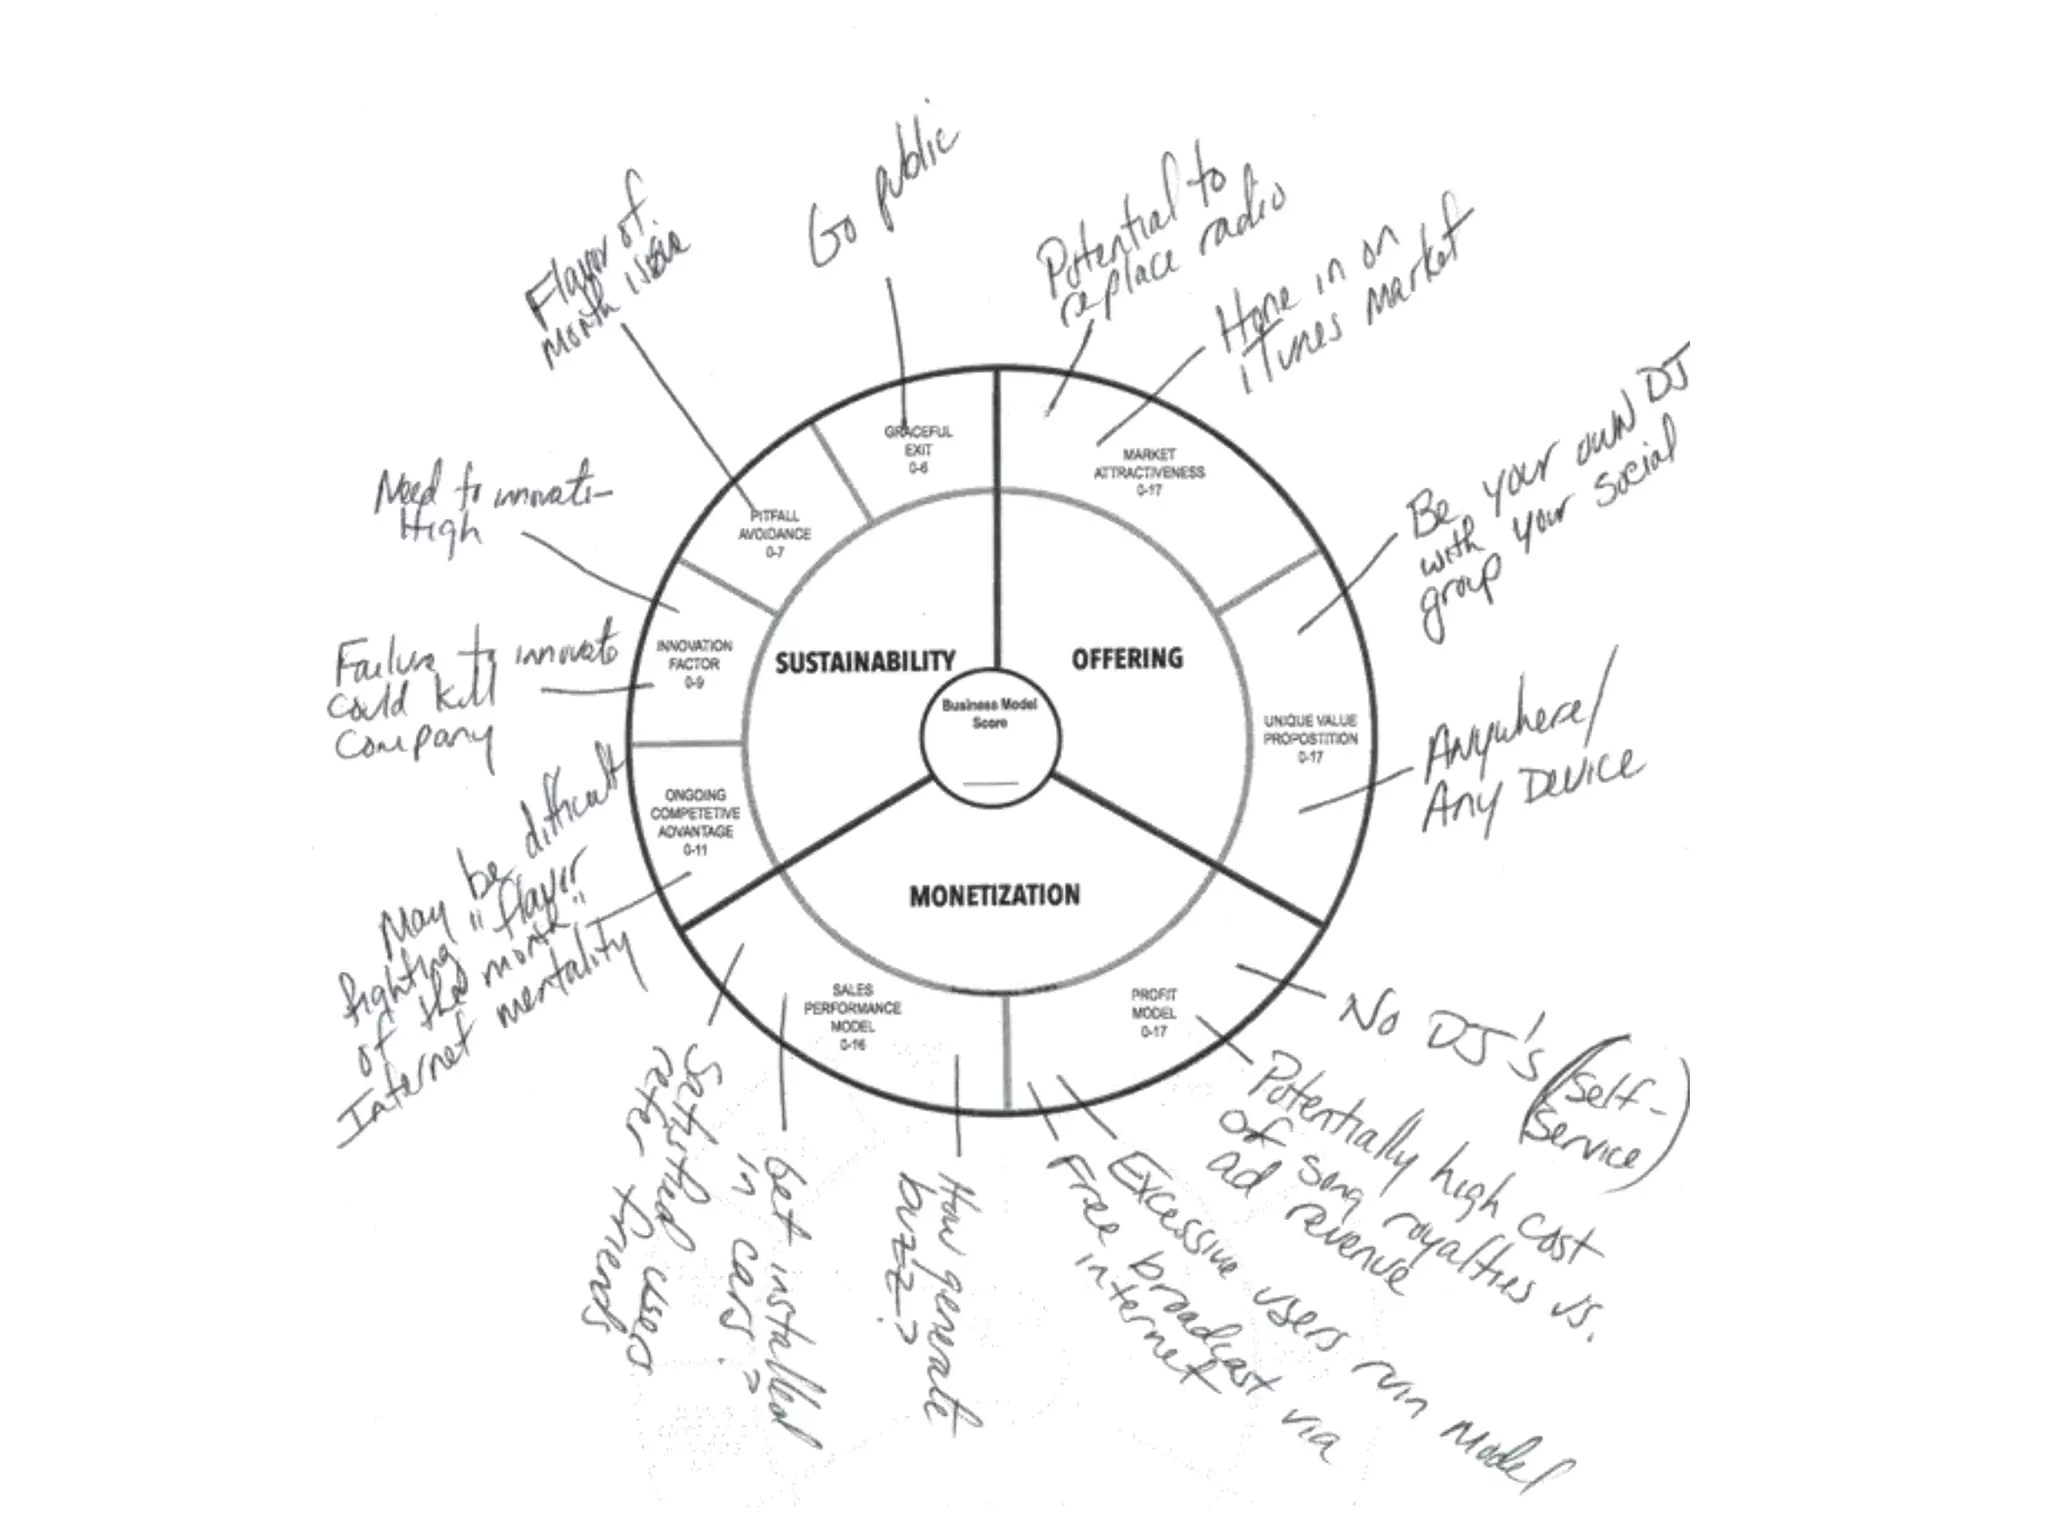 Go public
Flavor of
month issue
Potential to
replace radio
Hone in on
iTunes Market
Be your own DJ
with your social
group
Need to innovate-
High
Failure to innovate
could kill
company
May be difficult
fighting "flavor
of the month"
Internet mentality
Anywhere/
Any Device
GRACEFUL
EXIT
0-6
MARKET
ATTRACTIVENESS
0-17
PITFALL
AVOIDANCE
0-7
INNOVATION
FACTOR
0-9
SUSTAINABILITY
OFFERING
Business Model
Score
UNIQUE VALUE
PROPOSTITION
0-17
ONGOING
COMPETETIVE
ADVANTAGE
0-11
MONETIZATION
SALES
PERFORMANCE
MODEL
0-16
PROFIT
MODEL
0-17
No DJ's (Self-
Service)
Potentially high cost
of song royalties vs.
ad revenue
Excessive users ruin model
Free broadcast via
internet
How generate
buzz?
Get installed
in cars?
Satisfied users
refer friends